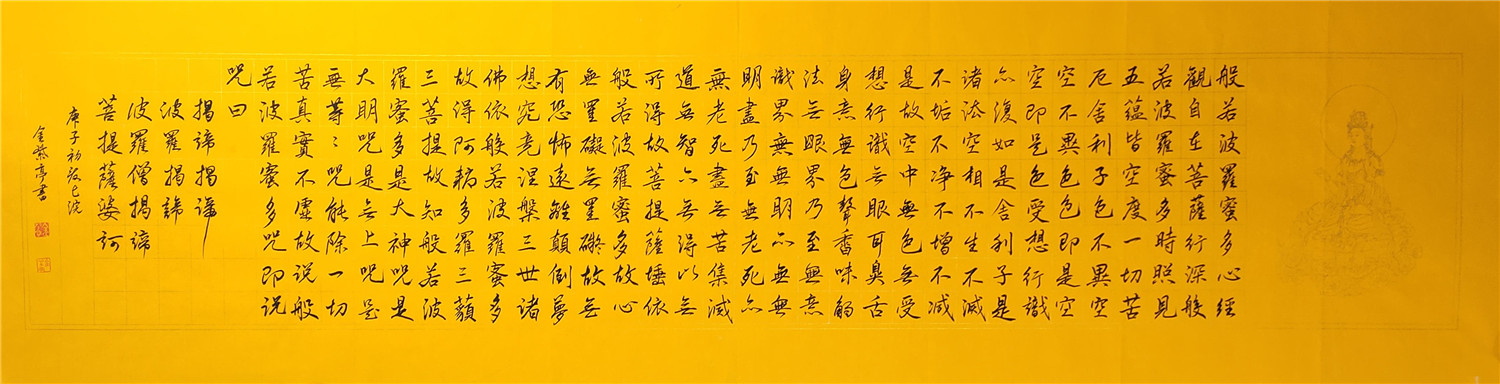 般若波羅蜜多心經
觀自在菩薩行深般
若波羅蜜多時照見
五蘊皆空度一切苦
厄舍利子色不異空
空不異色色即是空
空即是色受想行識
亦復如是舍利子是
諸法空相不生不滅
不垢不净不增不减
是故空中無色无受
想行識无眼耳鼻舌
身意無色聲香味觸
法无眼界乃至無意
識界無無明亦無無
明盡乃至無老死亦
無老死盡无苦集滅
道无智亦无得以无
所得故菩提薩埵依
般若波羅蜜多故心
無罣礙无罣礙故无
有恐怖遠離顛倒夢
想究竟涅槃三世諸
佛依般若波羅蜜多
故得阿耨多羅三藐
三菩提故知般若波
羅蜜多是大神咒是
大明咒是无上咒是
無等〻咒能除一切
苦真實不虛故說般
若波羅蜜多咒即說
咒曰
揭諦揭諦
波羅揭諦
波羅僧揭諦
菩提薩婆訶
庚子初
金紫亭書